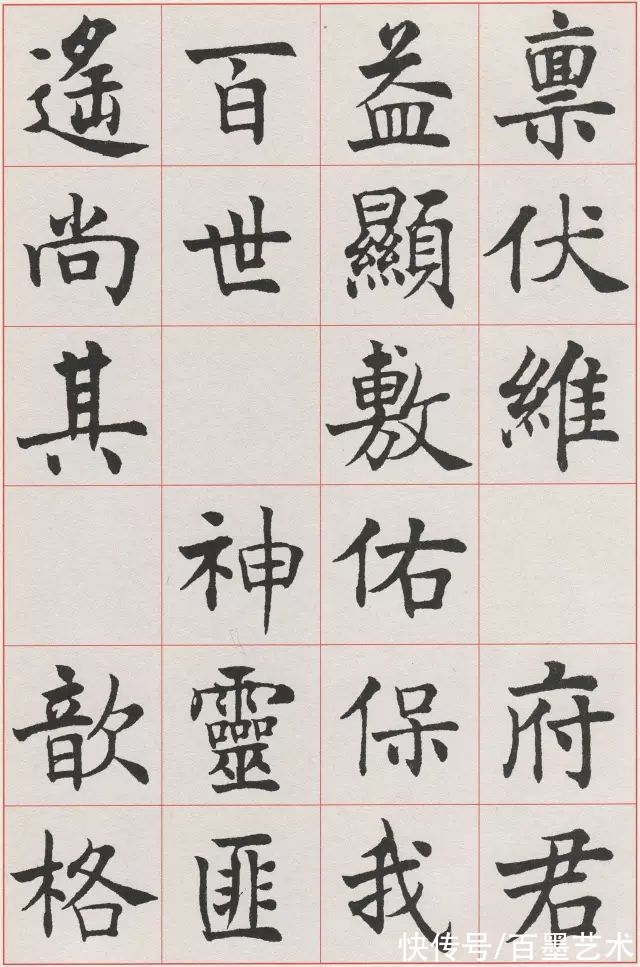 禀伏維府君
益顯敷佑保我
百世神靈匪
遙尚其歆格
快传号/百墨艺术